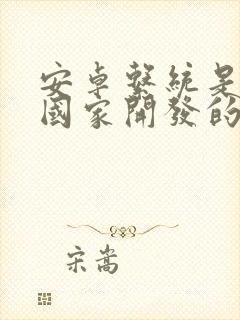 安卓繫統是
國家開發的
宋嵩